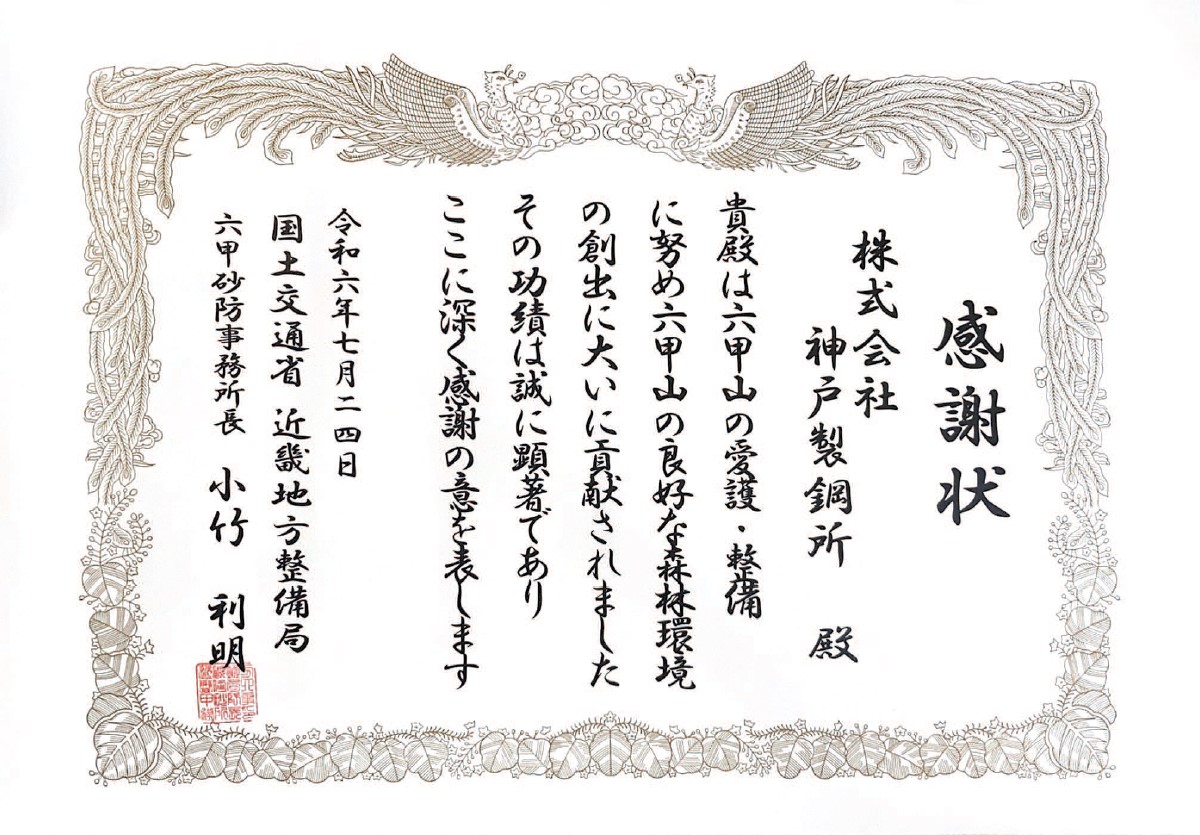 感謝状
株式会社
神戸製鋼所 殿
貴殿は六甲山の愛護・整備
に努め六甲山の良好な森林環境
の創出に大いに貢献されました
その功績は誠に顕著であり
ここに深く感謝の意を表します
令和六年七月二四日
国土交通省 近畿地方整備局
六甲砂防事務所長 小竹 利明